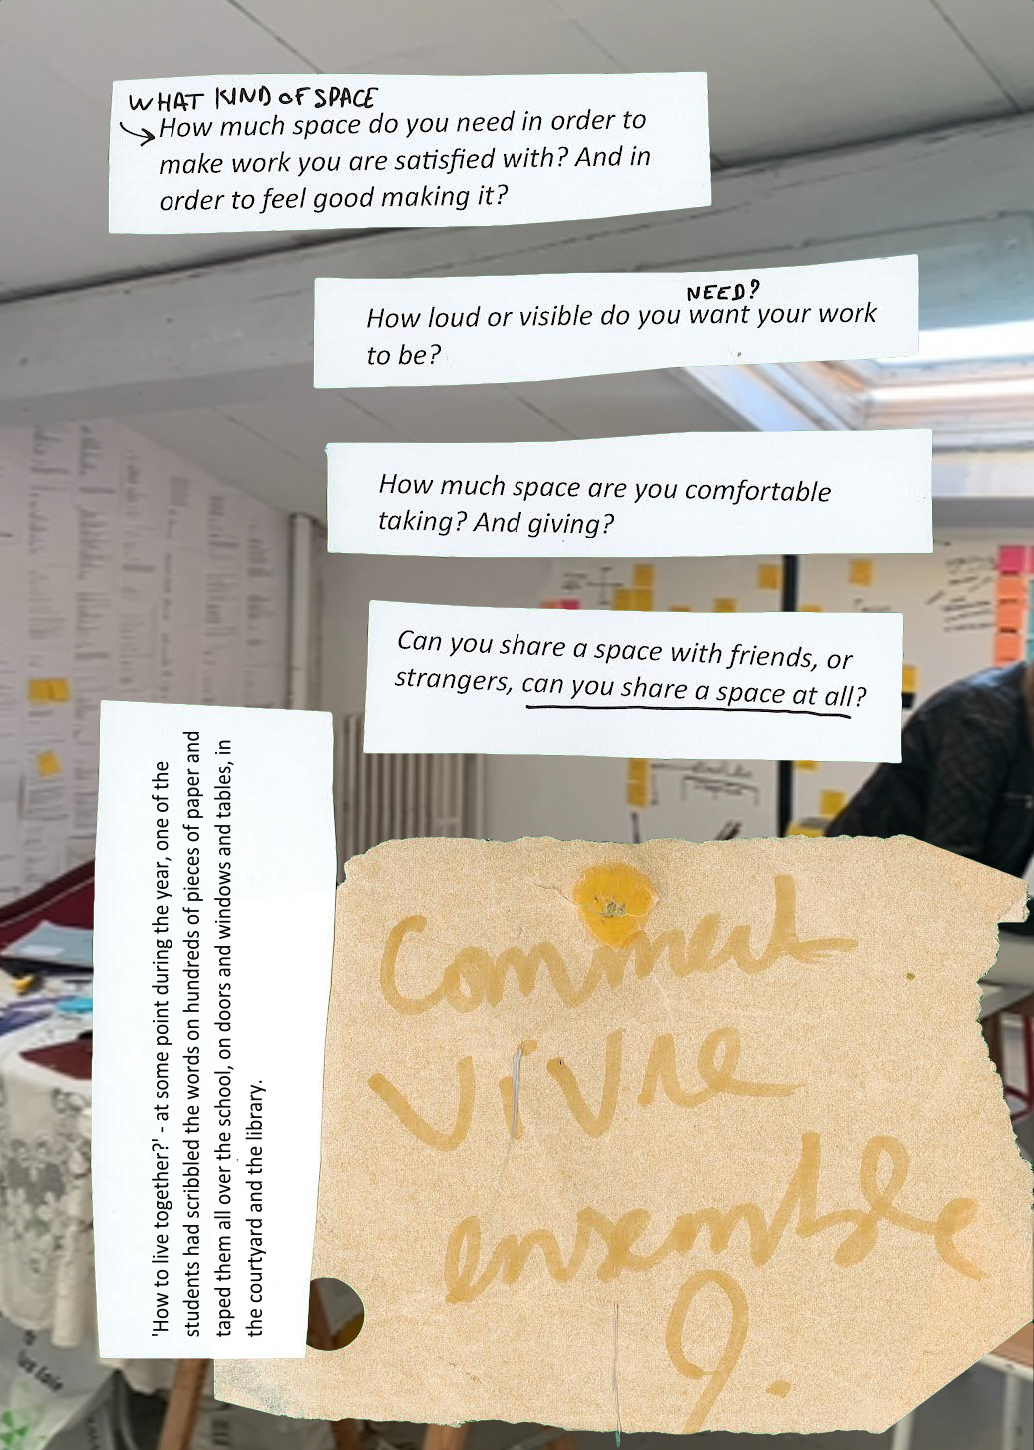 WHAT KIND OF SPACE
How much space do you need in order to
make work you are satisfied with? And in
order to feel good making it?
NEED?
How loud or visible do you want your work
to be?
How much space are you comfortable
taking? And giving?
Can you share a space with friends, or
strangers, can you share a space at all?
'How to live together?' - at some point during the year, one of the
students had scribbled the words on hundreds of pieces of paper and
taped them all over the school, on doors and windows and tables, in
the courtyard and the library.
Comment
vivre
ensemble
?